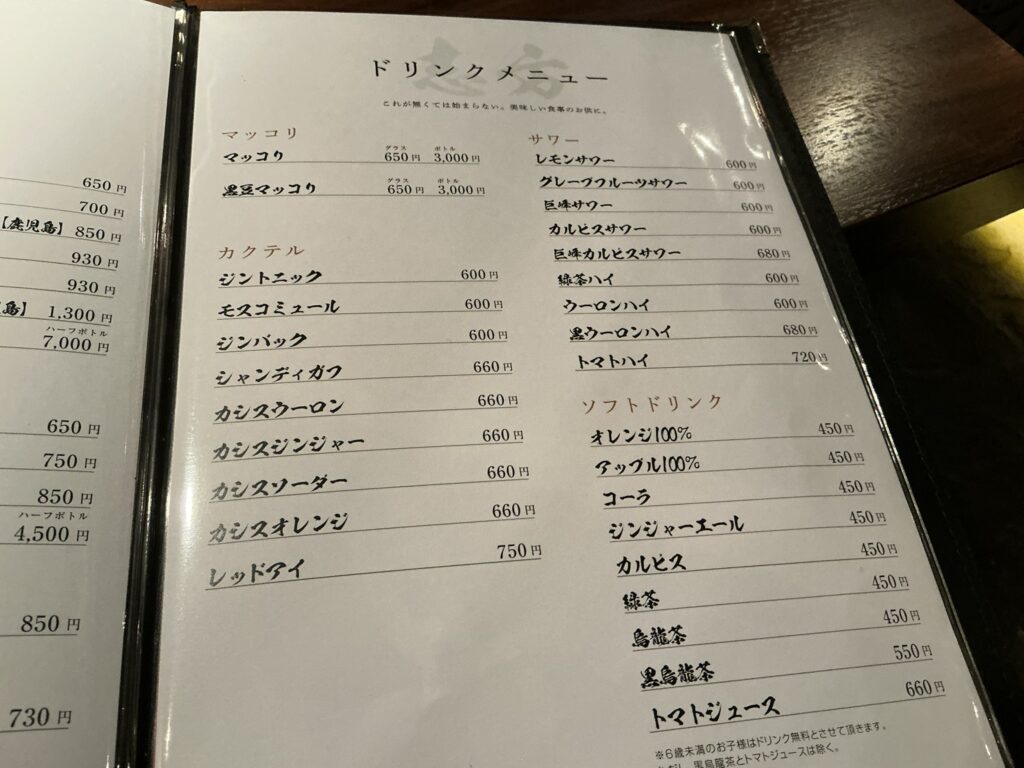 650円
700円
【鹿児島】 850円
930円
930円
島】 1,300円
ハーフボトル
7,000円
650円
750円
850円
ハーフボトル
4,500円
850円
730円
志方
ドリンクメニュー
これが無くては始まらない。美味しい食事のお供に。
マッコリ
マッコリ グラス 650円 ボトル 3,000円
黒豆マッコリ グラス 650円 ボトル 3,000円
カクテル
ジントニック 600円
モスコミュール 600円
ジンバック 600円
シャンディガフ 660円
カシスウーロン 660円
カシスジンジャー 660円
カシスソーダー 660円
カシスオレンジ 660円
レッドアイ 750円
サワー
レモンサワー 600円
グレープフルーツサワー 600円
巨峰サワー 600円
カルピスサワー 600円
巨峰カルピスサワー 680円
緑茶ハイ 600円
ウーロンハイ 600円
黒ウーロンハイ 680円
トマトハイ 720円
ソフトドリンク
オレンジ100% 450円
アップル100% 450円
コーラ 450円
ジンジャーエール 450円
カルピス 450円
緑茶 450円
烏龍茶 450円
黒烏龍茶 550円
トマトジュース 660円
※6歳未満のお子様はドリンク無料とさせて頂きます。
ただし、黒烏龍茶とトマトジュースは除く。